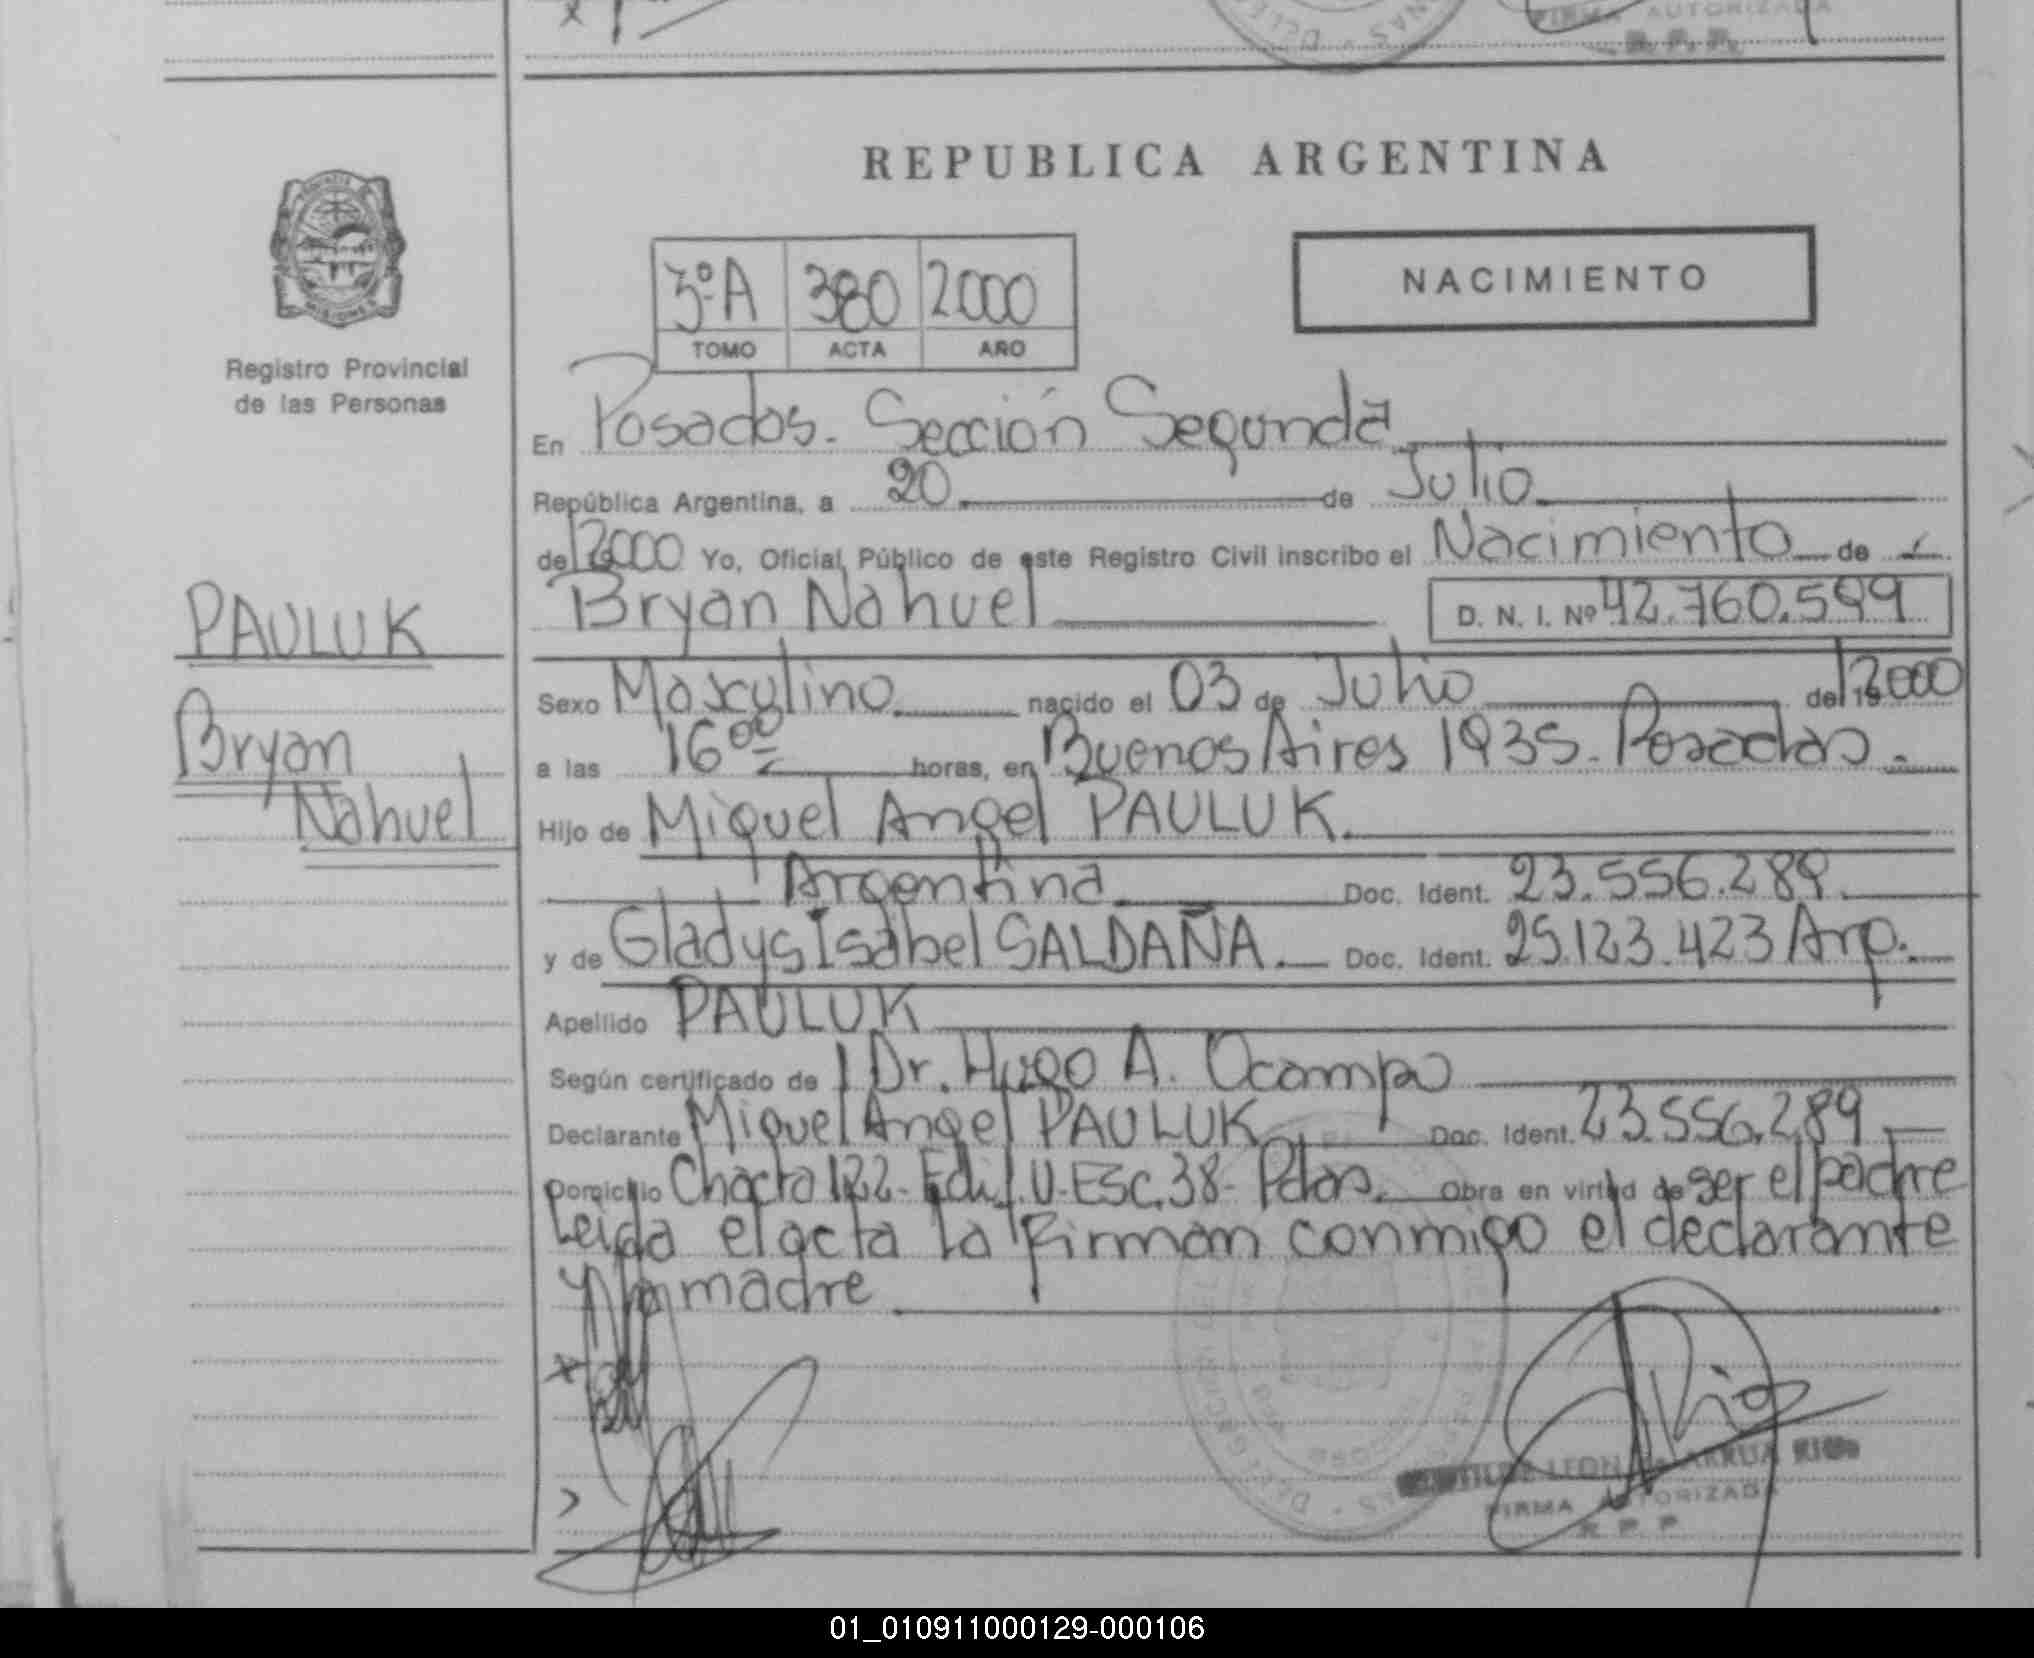 FIRMA AUTORIZADA
R. P. P.
REPUBLICA ARGENTINA
3º A 380 2000
TOMO ACTA AÑO
NACIMIENTO
MISIONES
Registro Provincial
de las Personas
En Posadas. Sección Segunda
República Argentina, a 20 de Julio
de 19 2000 Yo, Oficial Público de este Registro Civil inscribo el Nacimiento de
Bryan Nahuel D. N. I. Nº 42.760.599
PAULUK
Bryan
Nahuel
Sexo Masculino nacido el 03 de Julio de 19 2000
a las 16 00 horas, en Buenos Aires 1935. Posadas.
Hijo de Miguel Angel PAULUK.
Argentina Doc. Ident. 23.556.289
y de Gladys Isabel SALDAÑA. Doc. Ident. 25.123.423 Arg.
Apellido PAULUK
Según certificado de Dr. Hugo A. Ocampo
Declarante Miguel Angel PAULUK Doc. Ident. 23.556.289
Domicilio Chacra 122- Edif. U- Esc. 38- Pdas. Obra en virtud de ser el padre
Leida el acta la firman conmigo el declarante
y la madre
LEON de ARRUA RIOS
FIRMA AUTORIZADA
R. P. P.
01_010911000129-000106